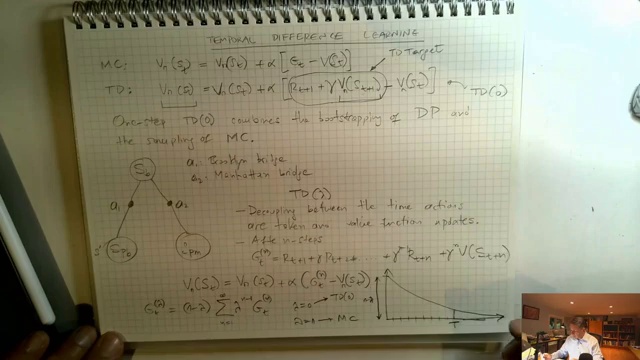 TEMPORAL DIFFERENCE LEARNING
MC: Vπ(St) = Vπ(St) + α [Gt − V(St)]
TD Target
TD: Vπ(St) = Vπ(St) + α [Rt+1 + γ Vπ(St+1) − Vπ(St)]
TD(0)
One-step TD(0) combines the bootstrapping of DP and
the sampling of MC.
St
a1: Brooklyn bridge
a2: Manhattan bridge
a1
a2
TD(λ)
- Decoupling between the time actions
are taken and value function updates.
- After n-steps
Gt(n) = Rt+1 + γRt+2 ... + γ^n-1 Rt+n + γ^n V(St+n)
Vπ(St) = Vπ(St) + α (Gt(n) − Vπ(St))
Gt(λ) = (1-λ) Σ n=1 ∞ λ^n-1 Gt(n)
λ=0 → TD(0)
→ MC
1-λ
T